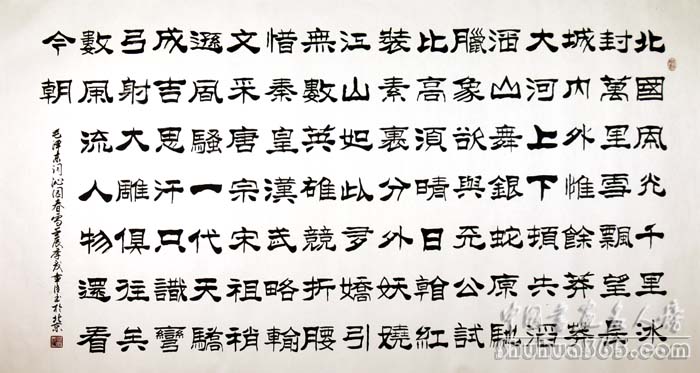 北國風光千里冰
封萬里雪飄望長
城内外惟餘莽莽
大河上下頓失滔
滔山舞銀蛇原馳
臘象欲與天公試
比高須晴日看紅
裝素裹分外妖嬈
江山如此多嬌引
無數英雄競折腰
惜秦皇漢武略輸
文采唐宗宋祖稍
遜風騷一代天驕
成吉思汗只識彎
弓射大雕俱往矣
數風流人物還看
今朝
毛澤東詞沁園春雪壬辰於北京
shuhua365.com